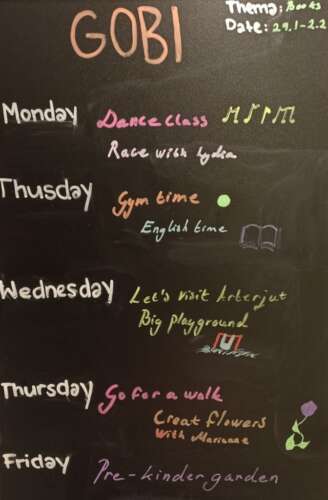 GOBI
Thema: Books
Date: 29.1-2.2
Monday Dance class
Race with Lydia
Thusday Gym time
English time
Wednesday Let's visit Arterjut
Big playground
Thursday Go for a walk
Creat flowers
With Marianne
Friday Pre-kindergarden